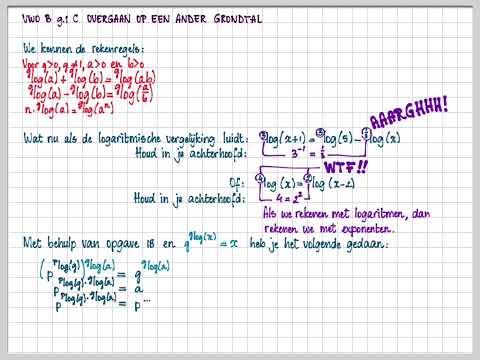 VWO B 9.1 C OVERGAAN OP EEN ANDER GRONDTAL
We kennen de rekenregels:
Voor g>0, g≠1, a>0 en b>0
ᵍlog(a) + ᵍlog(b) = ᵍlog(ab)
ᵍlog(a) - ᵍlog(b) = ᵍlog(a/b)
n · ᵍlog(a) = ᵍlog(aⁿ)
AAARGHHH!
Wat nu als de logaritmische vergelijking luidt: ³log(x+1) = ³log(5) - ^(1/3)log(x)
Houd in je achterhoofd: 3⁻¹ = 1/3
WTF!!
Of: ⁴log(x) = ²log(x-2)
Houd in je achterhoofd: 4 = 2²
Als we rekenen met logaritmen, dan
rekenen we met exponenten.
Met behulp van opgave 18 en g^(ᵍlog(x)) = x heb je het volgende gedaan:
(p^(ᵖlog(g)))^(ᵍlog(a)) = g^(ᵍlog(a))
p^(ᵖlog(g) · ᵍlog(a)) = a
p^(ᵖlog(g) · ᵍlog(a)) = p^...